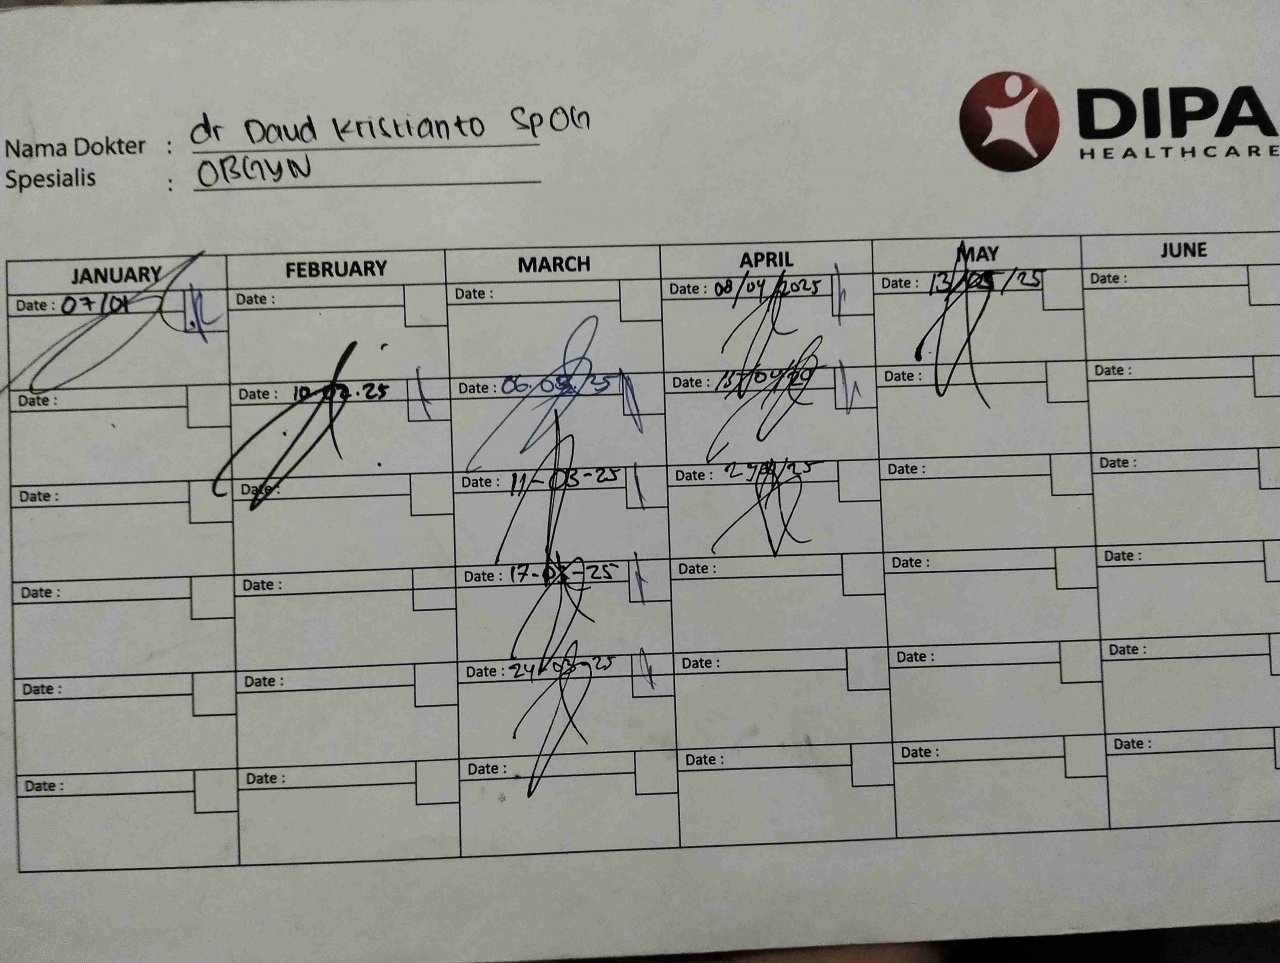 DIPA
HEALTHCARE
Nama Dokter : dr Daud Kristianto SpOG
Spesialis : OBGYN
JANUARY FEBRUARY MARCH APRIL MAY JUNE
Date : 07/01 Date : Date : Date : 08/04/2025 Date : 13/05/25 Date :
Date : Date : 10.02.25 Date : 06.03./25 Date : 15/04/25 Date : Date :
Date : Date : Date : 11-03-25 Date : 29/04/25 Date : Date :
Date : Date : Date : 17-03-25 Date : Date : Date :
Date : Date : Date : 24-03-25 Date : Date : Date :
Date : Date : Date : Date : Date : Date :